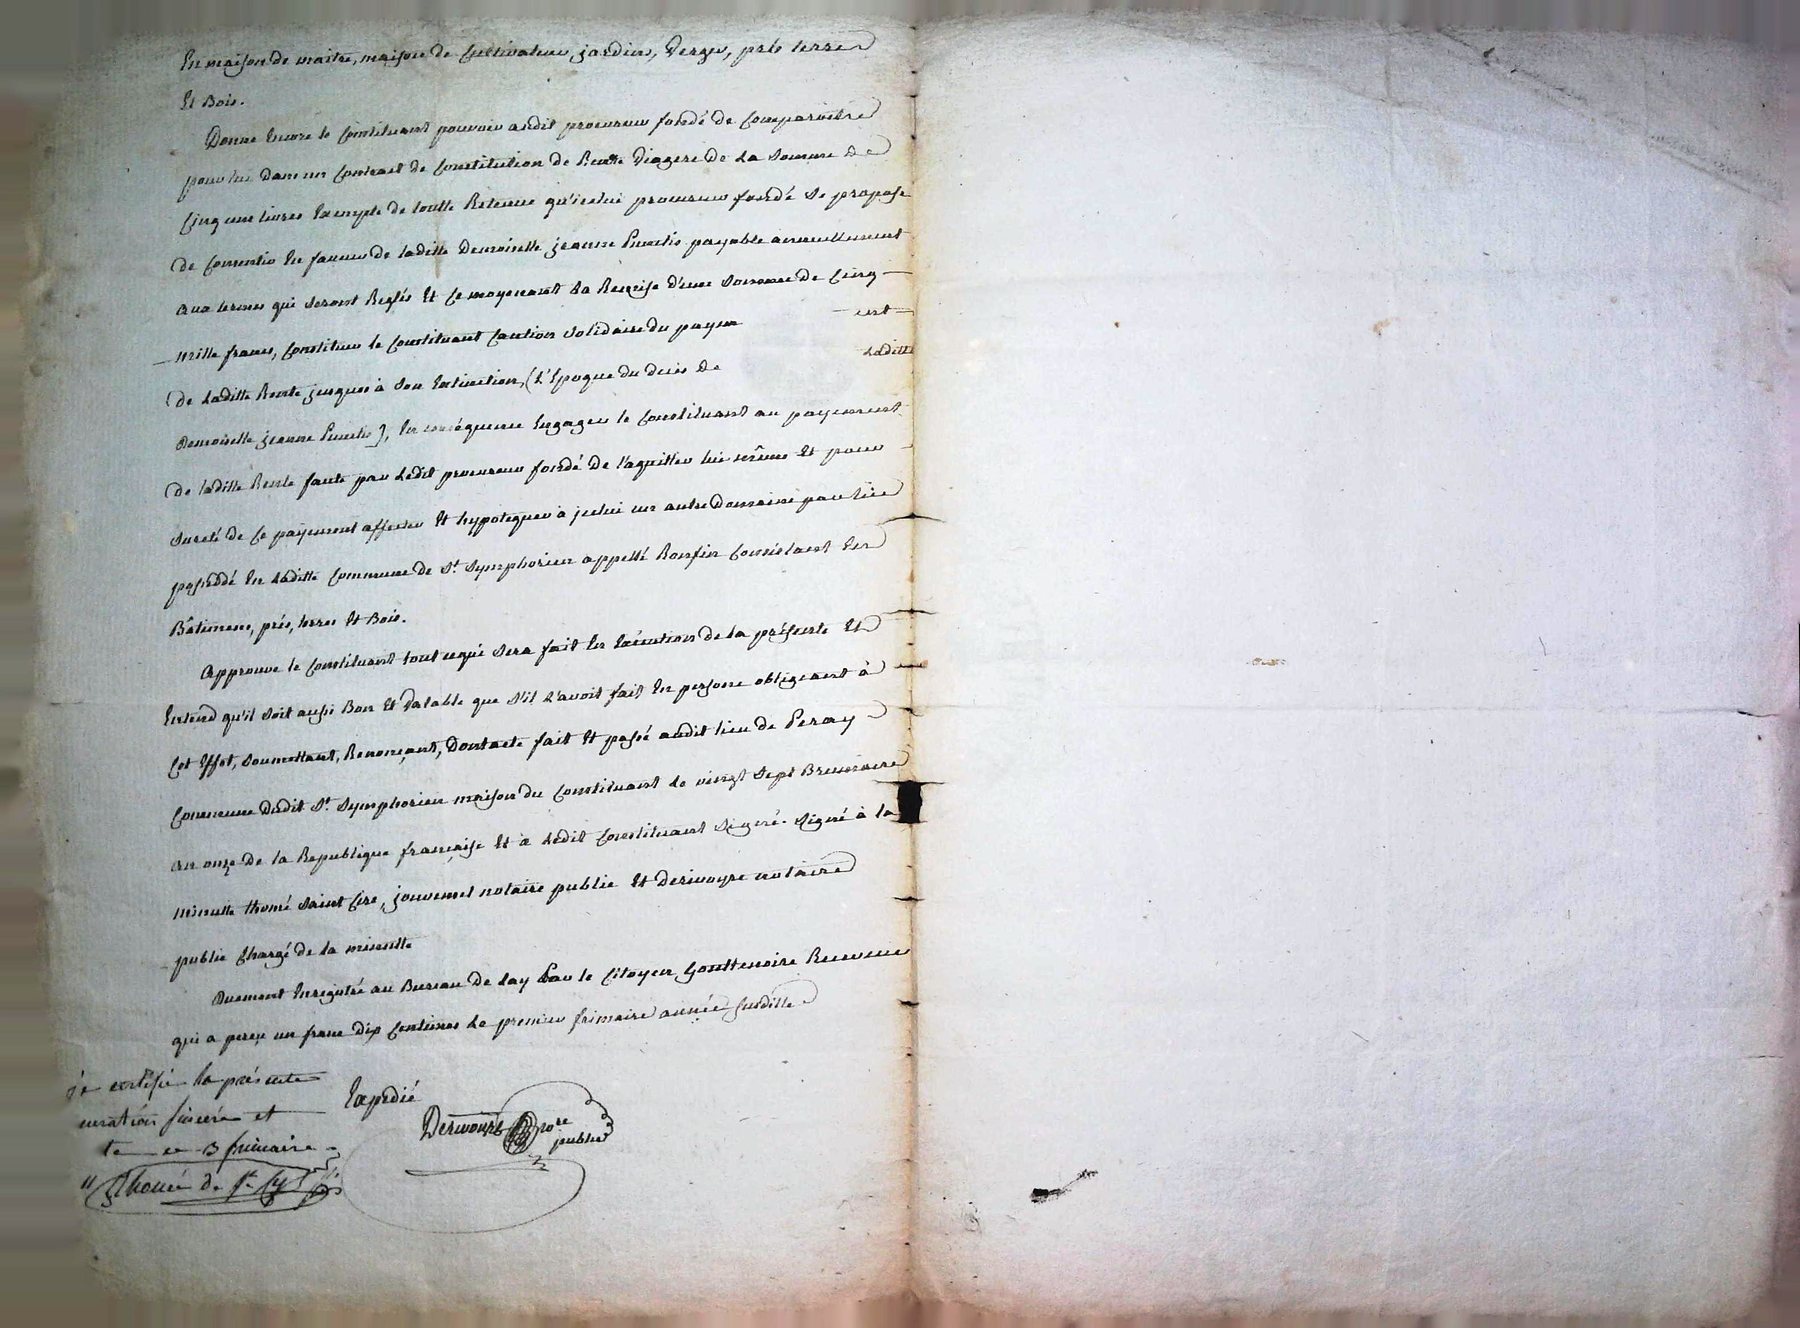 En maison de maitre, maison de Cultivateur, jardins, Verger, prés terres
Et Bois.
Donne Encore le Constituant pouvoir audit procureur fondé de Comparoître
pour lui dans un Contrast de Constitution de Rente Viagere de La Somme de
Cinq cens livres Exempte de toutte Retenue qu'icelui procureur fondé Se propose
de Consentir En faveur de laditte Demoiselle jeanne payable annuellement
aux termes qui Seront Reglés Et Ce moyenant La Remise d'une Somme de Cinq
mille francs, Constituer le Constituant Caution Solidaire du payem ent
de Laditte Rente jusques à Son Extinction, (L'Epoque du decès de Laditte
Demoiselle jeanne ), En conséquence Engager le Constituant au payement
de laditte Rente faute par Ledit procureur fondé de l'aquitter lui même Et pour
Sureté de Ce payement affecter Et hypotequer à jcelui un autre Domaine par lui
possedé En Laditte Commune de St. Symphorien appellé Ronfin Consistant En
Bâtimens, prés, terres Et Bois.
Approuve le Constituant tout ce qui Sera fait En Exécution de la présente Et
Entend qu'il Soit aussi Bon Et Valable que S'il L'avoit fait En personne obligeant à
Cet Effet, Soumettant, Renonçant, Dont acte fait Et passé audit lieu de Peray
Commune dudit St. Symphorien maison du Constituant Le vingt Sept Brumaire
an onze de la Republique française Et a Ledit Constituant Signé. Signé à la
minutte thomé Saint Cire, jouvencel notaire public Et Derivoyre notaire
public Chargé de La minutte
Duement Enregistré au Bureau de Lay Par le Citoyen Gouttenoire Receveur
qui a perçu un franc Dix Centimes Le premier frimaire année Susditte
Expedié
Derivoyre nore
public
je certifie la présente
curation sincére et
te ce 3 frimaire
Thomé de St Cyr